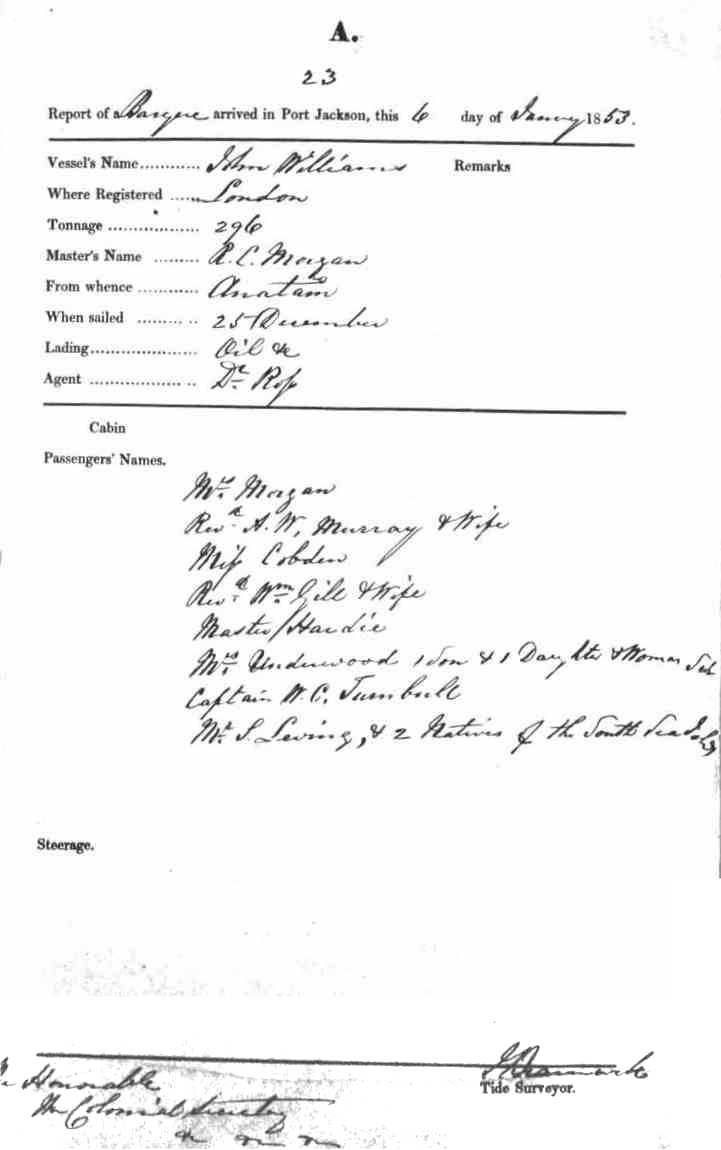 A.
23
Report of a Barque arrived in Port Jackson, this 6 day of Janury 1853.
Vessel's Name............ John Williams Remarks
Where Registered ....... London
Tonnage .................. 296
Master's Name ......... R. C. Morgan
From whence ............ Anatam
When sailed ......... .. 25 December
Lading..................... Oil &c
Agent .................. .. Dr. Ross
Cabin
Passengers' Names.
Mrs. Morgan
Revd. A. W. Murray & Wife
Miss Cobden
Revd. Wm. Gill & Wife
Master Hardie
Mrs. Underwood 1 Son & 1 Daughter & Woman
Captain W. C. Turnbull
Mr. S. Leving, & 2 Natives of the South Sea Isl
Steerage.
Tide Surveyor.
Honorable
The Colonial Secretary
&c &c &c